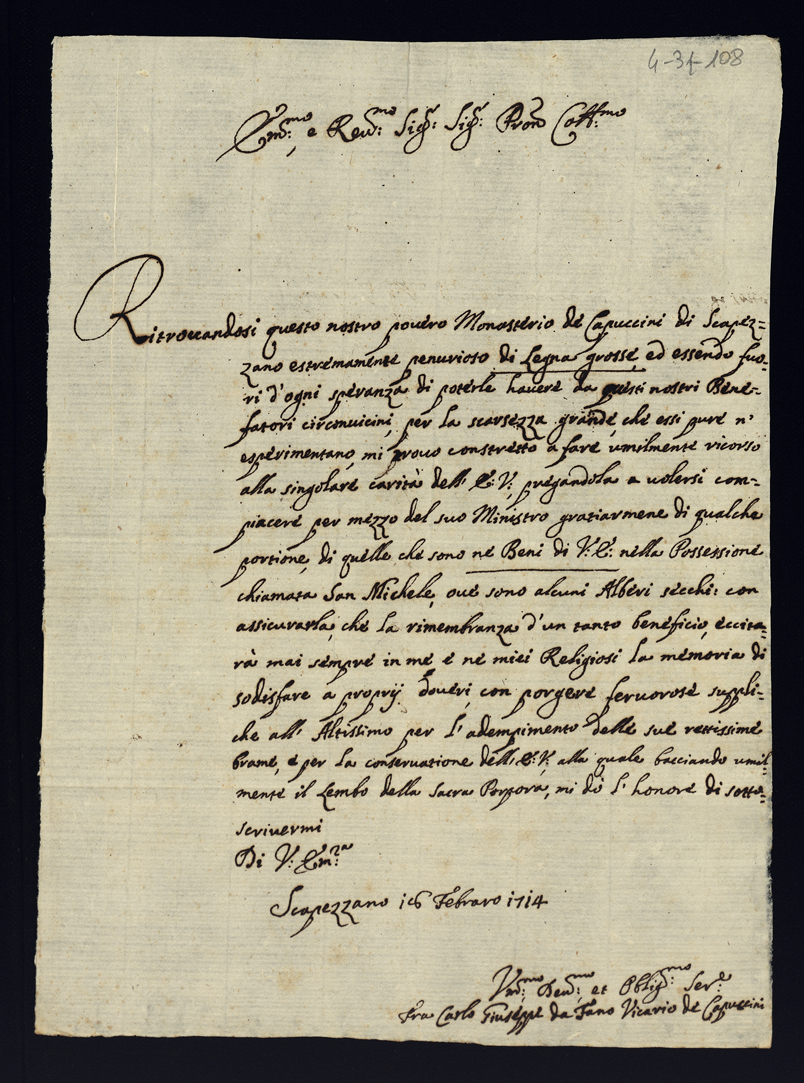 4-34-108
Em:mo, e Reu:mo Sig:r Sig:r Pron Coll:mo
Ritrouandosi questo nostro pouero Monasterio de Capuccini di Scapez=
zano estremamente penurioso di Legna grosse, ed essendo fuo=
ri d'ogni speranza di poterle hauere da questi nostri Bene=
fatori circonuicini, per la scarsezza grande, che essi pure n'
esperimentano, mi trouo constretto a fare umilmente ricorso
alla singolare carità dell' E: V:, pregandola a uolersi com=
piacere per mezzo del suo Ministro gratiarmene di qualche
portione, di quelle che sono ne Beni di V: E: nella Possessione
chiamata San Michele, oue sono alcuni Alberi secchi: con
assicurarla, che la rimembranza d'un tanto beneficio, eccita=
rà mai sempre in me e ne miei Religiosi la memoria di
sodisfare a proprij doueri, con porgere feruorose suppli=
che all' Altissimo per l'adempimento delle sue rettissime
brame, e per la conseruatione dell' E: V: alla quale bacciando umil=
mente il Lembo della sacra Porpora, mi dò l'honore di sotto=
scriuermi
Di V: Em:za
Scapezzano 16 Febraro 1714
Um:mo Deu:mo et Oblig:mo Ser:e
Fra Carlo Giuseppe da Fano Vicario de Capuccini